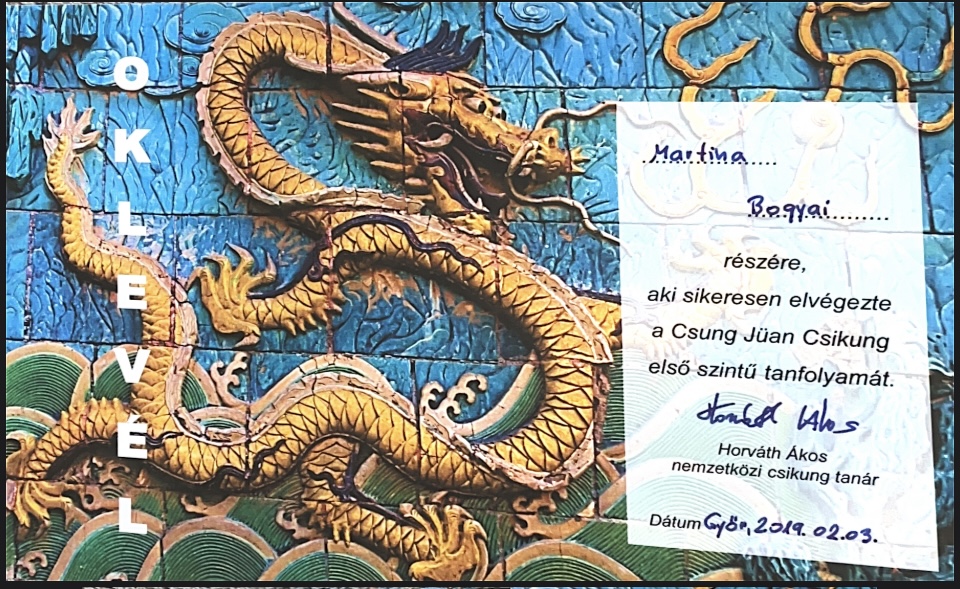 OKLEVÉL
Martina
Bogyai
részére,
aki sikeresen elvégezte
a Csung Jüan Csikung
első szintű tanfolyamát.
Horváth Ákos
Horváth Ákos
nemzetközi csikung tanár
Dátum Győr, 2019. 02.03.